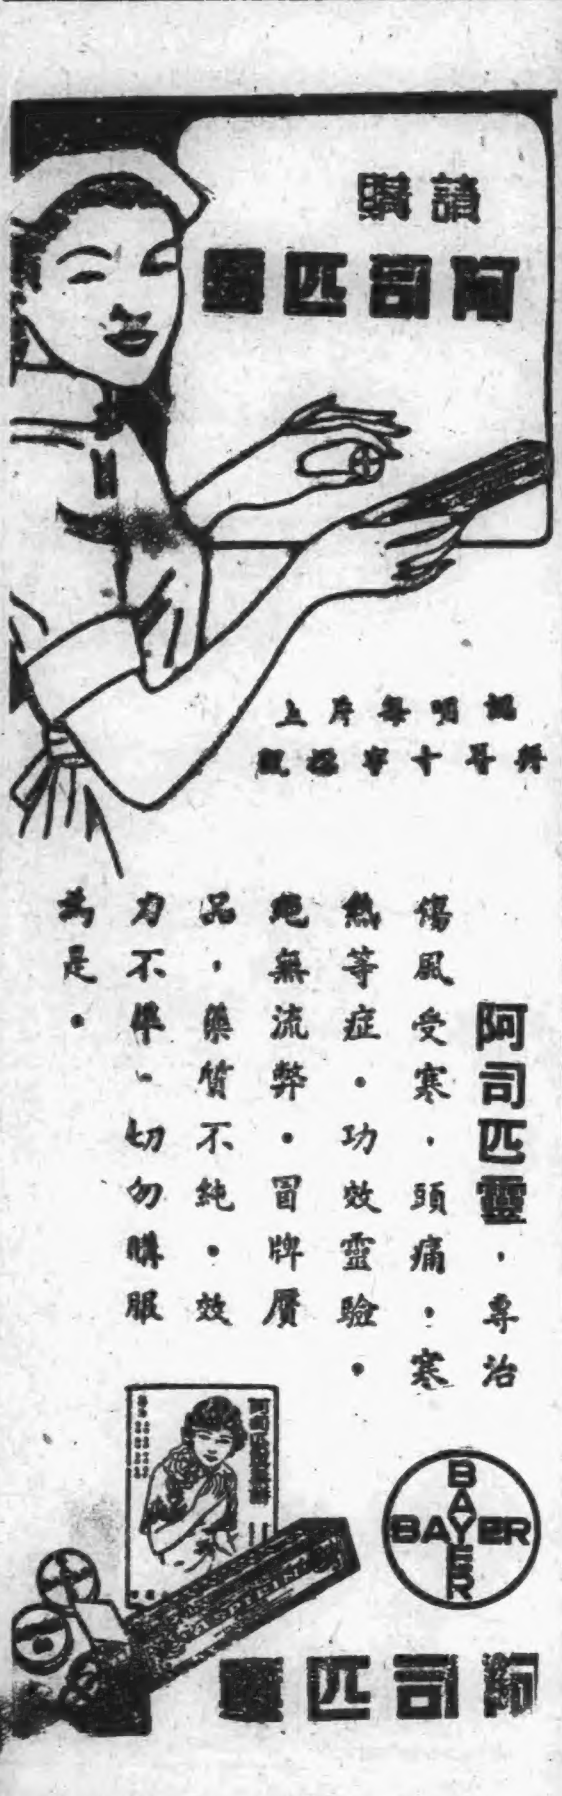 請購
阿司匹靈
認明每片上
拜耳十字商標
阿司匹靈・專治
傷風受寒・頭痛・寒
熱等症・功效靈驗・
絕無流弊・冒牌贋
品，藥質不純・效
力不準、切勿購服
為是・
BAYER
BAYER
阿司匹靈